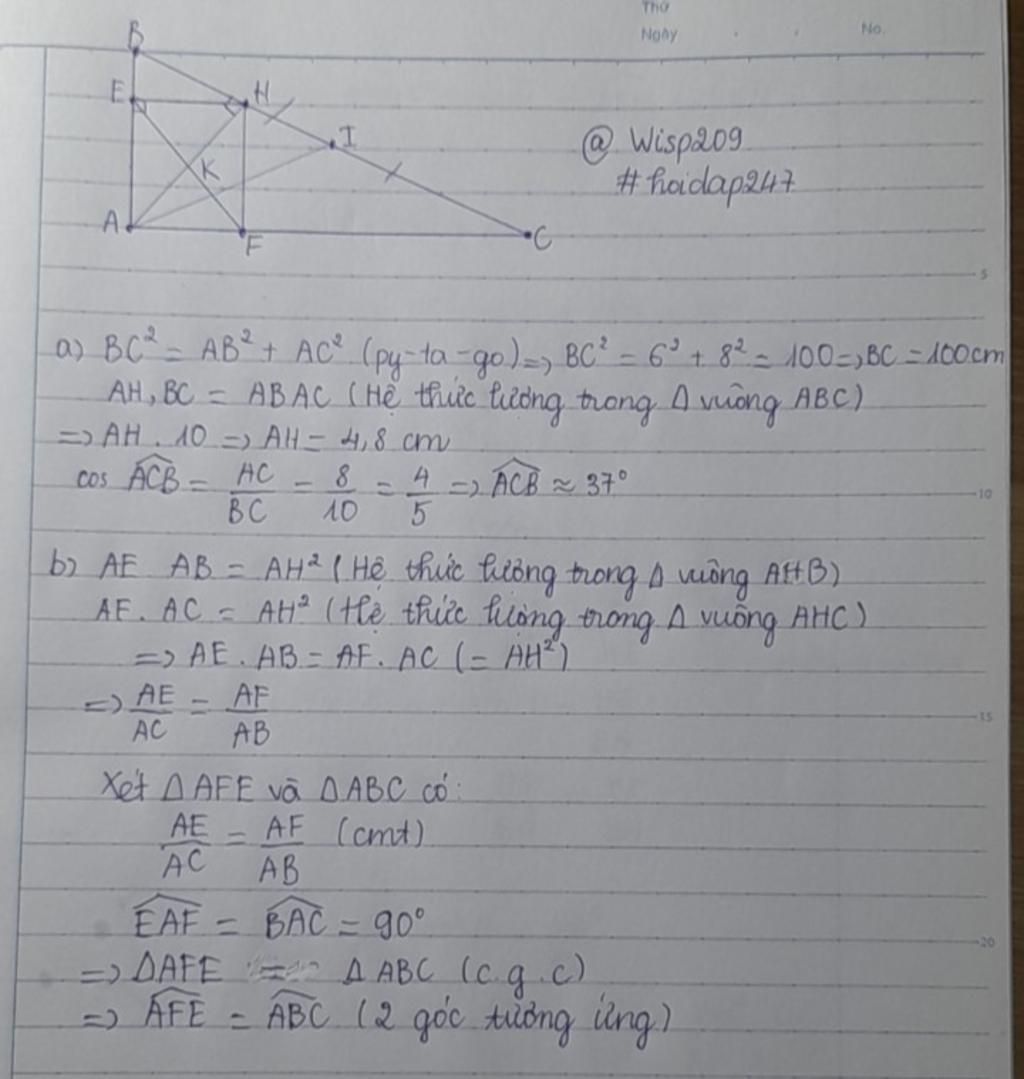 Thứ
Ngày . . No.
B
E H
I
K
A F C
@ Wisp209
#hoidap247
5
a) BC² = AB² + AC² (py-ta-go) => BC² = 6² + 8² = 100 => BC = 100cm
AH, BC = ABAC (Hệ thức lương trong Δ vuông ABC)
=> AH . 10 => AH = 4,8 cm
cos ACB = AC/BC = 8/10 = 4/5 => ACB ≈ 37°
10
b) AE AB = AH² (Hệ thức lượng trong Δ vuông AHB)
AF. AC = AH² (Hệ thức lượng trong Δ vuông AHC)
=> AE . AB = AF. AC (= AH²)
=> AE/AC = AF/AB
15
Xét Δ AFE và Δ ABC có:
AE/AC = AF/AB (cmt)
EAF = BAC = 90°
20
=> ΔAFE = Δ ABC (c.g.c)
=> AFE = ABC (2 góc tương ứng)